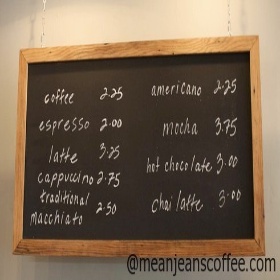 coffee 2.25
espresso 2.00
latte 3.25
cappuccino 2.75
traditional
macchiato 2.50
americano 2.25
mocha 3.75
hot chocolate 3.00
chai latte 3.00
@meanjeanscoffee.com